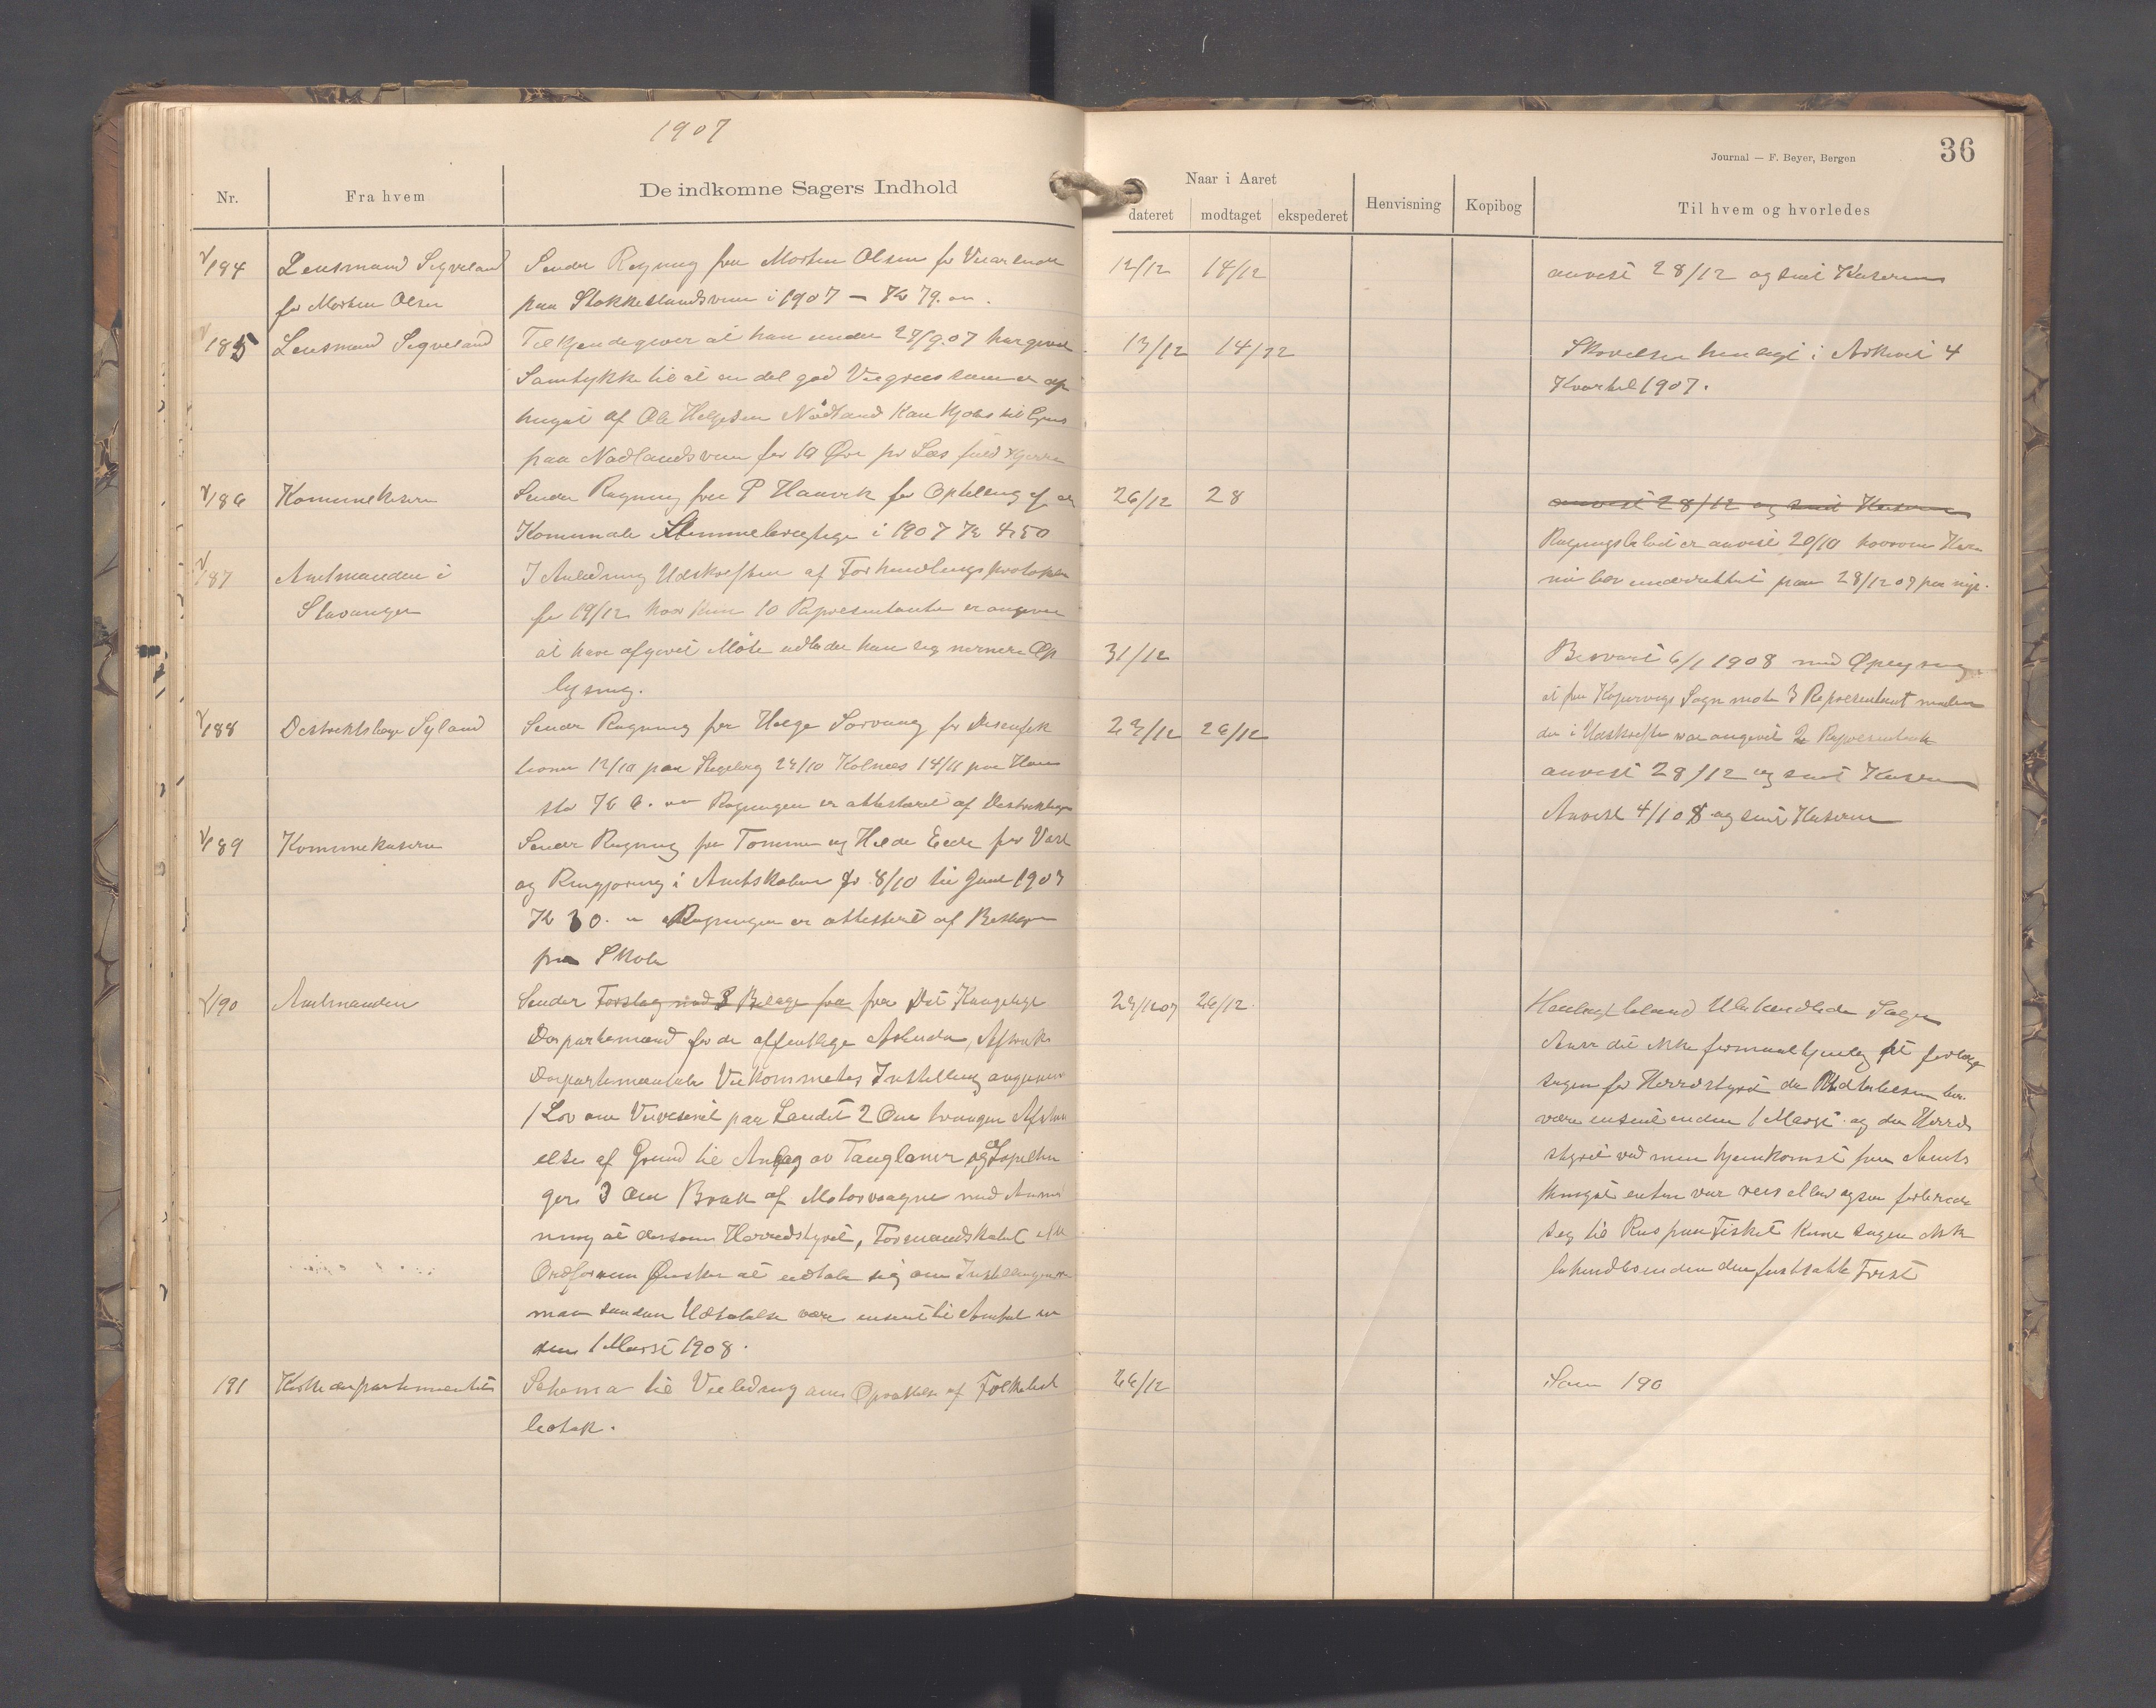 1907
36
Journal — F. Beyer, Bergen
Nr.
Fra hvem
De indkomne Sagers Indhold
Naar i Aaret
dateret
modtaget
ekspederet
Henvisning
Kopibog
Til hvem og hvorledes
184
Lensmand Sigveland
for Morten Olsen
Sender Regning fra Morten Olsen for
paa Stokkelandsveien i 1907 — Kr 79.
12/12
14/12
anvist 28/12 og sent Kaseren
185
Lensmand Sigveland
Tilkjendegiver at han under 27/9.07 har givet
Samtykke til at en del god er op
hugat af Ole Helgesen Nødland kan kjøbes til
paa Nødlandsveien for 10 Øre pr Læs
13/12
14/12
Skrivelsen henlagt i Arkivet 4
Kvartel 1907.
186
Komunekaseren
Sender Regning fra P Haavik for Optelling af
Komunale Stemmeberettige i 1907 Kr 4,50
26/12
28
anvist 28/12 og sent Kaseren
er anvist 20/10 hvorom
blev underrettet paa 28/12 07 paa
187
Amtmanden i
Stavanger
I Anledning Udskriften af Forhandlingsprotokolen
for 19/12 hvor kun 10 Representanter er angiven
at have afgivet Møte udbeder han sig nærmere Op
lysning.
31/12
Besvart 6/1 1908 med Oplysning
at fra Kopervigs Sogn møte 3 Representant medens
der i Udskriften var angivet 2 Representant
188
Distriktslæge Syland
Sender Regning fra Helge for Desenfek
tioner 12/10 paa 24/10 Kolnees 14/11 paa
Kr 6. Regningen er attesteret af Distriktslægen
23/12
26/12
anvist 28/12 og sent Kaseren
189
Komunekaseren
Sender Regning fra Tommen og Helde Eede for Vask
og Rengjøring i Amtskolen fr 8/10 til Juul 1907
Kr 30. Regningen er attesteret af Bestyren
paa Skole
Anvist 4/1 08 og sent Kaseren
190
Amtmanden
Sender Forslag med 3 Bilage fra fra Det Kongelige
Departement for de offentlige Arbeider, Aftryk
Departementale Veikommetes Instelling angaaende
1 Lov om Veivesenet paa Landet 2 Om tvungen Afstaa
else af Grund til Anlæg av Tauglaner og af
3 Om Bruk af Motorvogne med Anmod
ning at dersom Herredstyret, Formandskabet
Ordføreren Ønsker at udtale sig om Instellingen
maa saadan Udtalelse være ensent til Amtet
den 1 Marst 1908.
23/12 07
26/12
Henlagt bland Ubehandlede Sager
Ansees det ikke formaaltjenlig at forlegge
sagen for Herredstyret da Udtalelsen
være ensent inden 1 Marst og da Herreds
styret ved min hjemkomst fra Amts
tinget enten var reis eller ogsaa forberede
seg til Reis paa Fisket kune sagen ikke
behandles inden den fastsatte Frist
191
Kirkedepartementet
Schema til Veiledning om Oprettelse af Folkebib
liotek.
26/12
Som 190